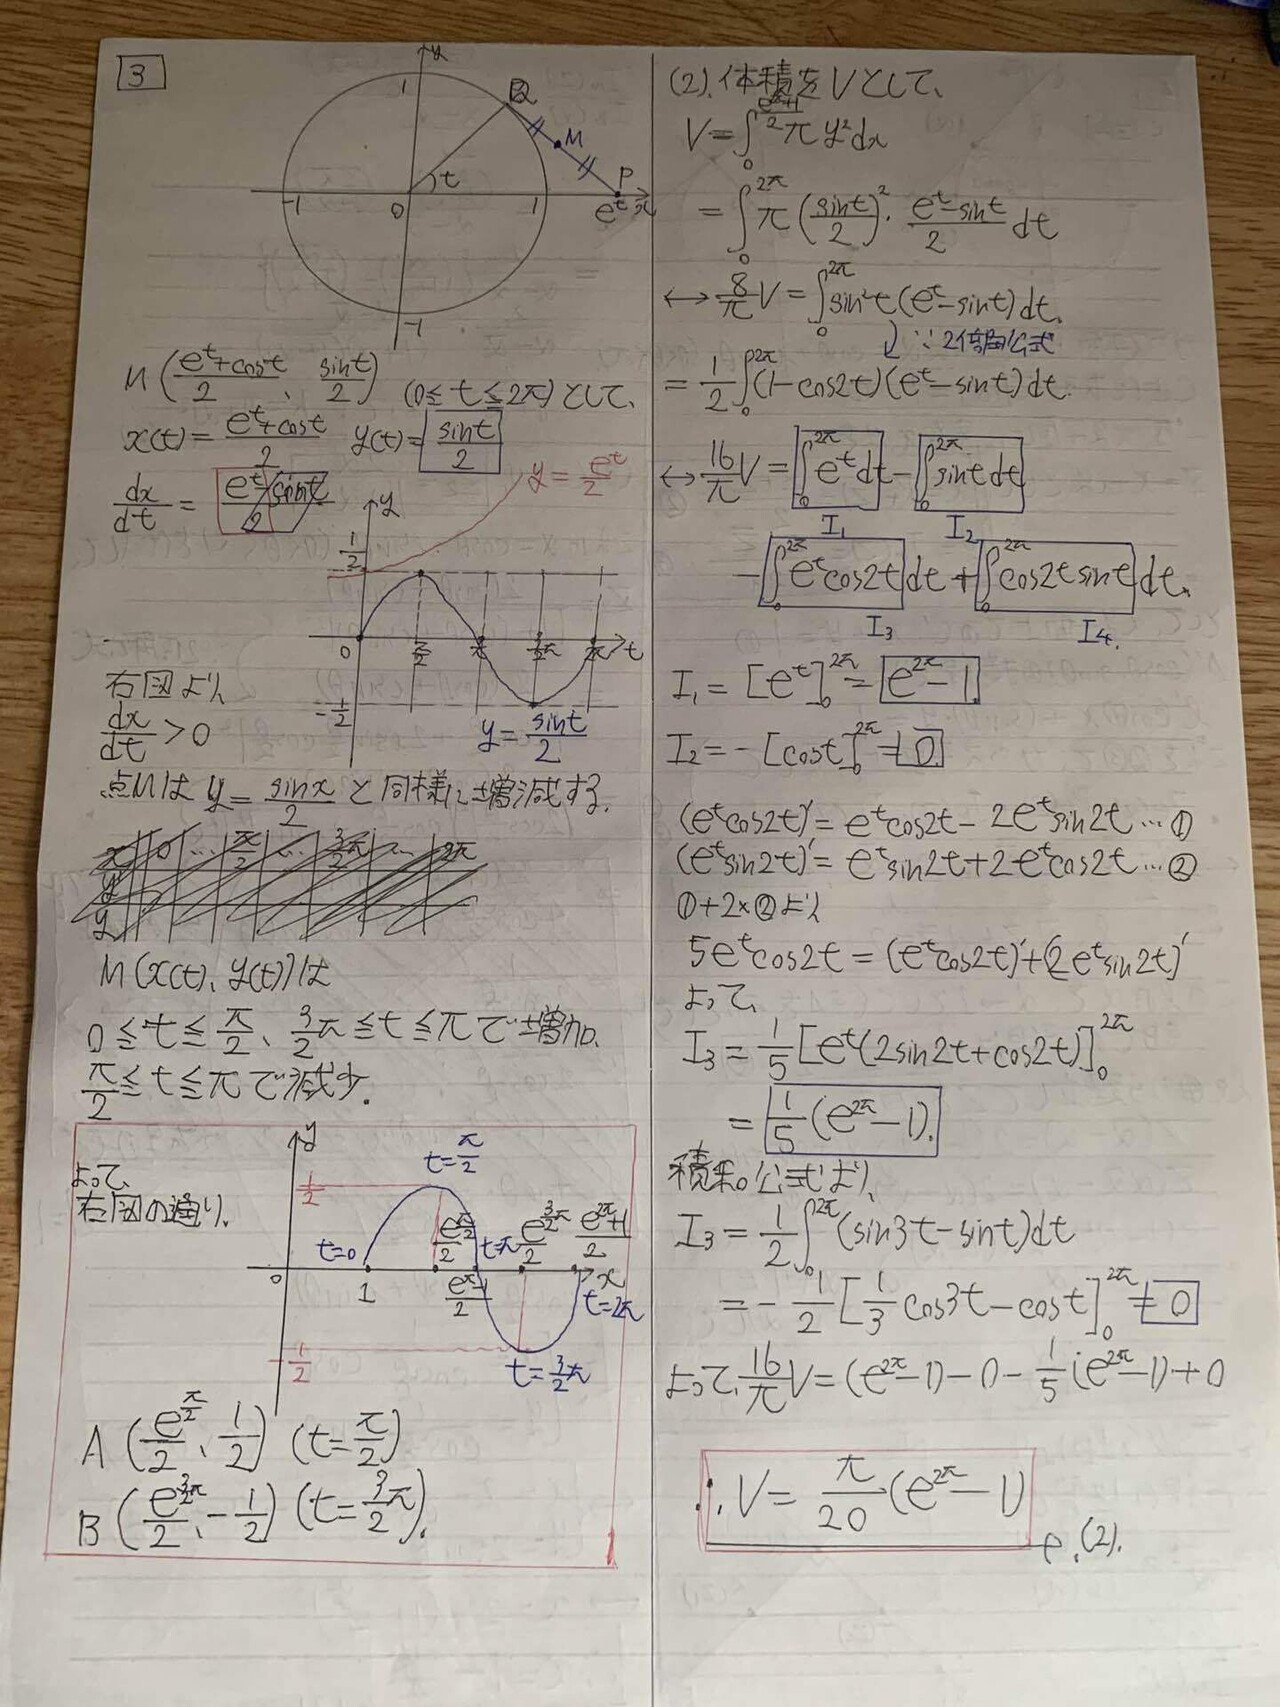 3
y
1
Q
M
P
t
-1
0
1
e^t x
-1
M(\frac{e^t+cost}{2}、\frac{sint}{2}) (0≦t≦2π)として、
x(t)=\frac{e^t+cost}{2} y(t)=\frac{sint}{2}
\frac{dx}{dt}=\frac{e^t-sint}{2}
y=\frac{e^t}{2}
y
\frac{1}{2}
0 \frac{π}{2} π \frac{3}{2}π 2π t
-\frac{1}{2}
y=\frac{sint}{2}
右図より、
\frac{dx}{dt}>0
点Mは y=\frac{sinx}{2} と同様に増減する。
x 0 … \frac{π}{2} … \frac{3}{2}π … 2π
y'
y
M(x(t)、y(t))は
0≦t≦\frac{π}{2}、\frac{3}{2}π≦t≦πで増加、
\frac{π}{2}≦t≦πで減少。
よって、
右図の通り。
y
t=\frac{π}{2}
\frac{1}{2}
t=0 \frac{e^{\frac{π}{2}}}{2} t=π \frac{e^{\frac{3}{2}π}}{2} \frac{e^{2π}+1}{2}
0 1 \frac{e^π-1}{2} x
t=2π
-\frac{1}{2}
t=\frac{3}{2}π
A(\frac{e^{\frac{π}{2}}}{2}、\frac{1}{2}) (t=\frac{π}{2})
B(\frac{e^{\frac{3}{2}π}}{2}、-\frac{1}{2}) (t=\frac{3}{2}π).
(2). 体積をVとして、
V=∫_0^{\frac{e^{2π}+1}{2}} πy²dx
=∫_0^{2π} π(\frac{sint}{2})²・\frac{e^t-sint}{2}dt
↔\frac{8}{π}V=∫_0^{2π} sin²t(e^t-sint)dt.
↓∵2倍角公式
=\frac{1}{2}∫_0^{2π}(1-cos2t)(e^t-sint)dt.
↔\frac{16}{π}V=∫_0^{2π}e^tdt-∫_0^{2π}sintdt
I₁ I₂
-∫_0^{2π}e^tcos2tdt+∫_0^{2π}cos2tsintdt.
I₃ I₄.
I₁=[e^t]_0^{2π}=e^{2π}-1.
I₂=-[cost]_0^{2π}=0.
(e^tcos2t)'=e^tcos2t-2e^tsin2t…①
(e^tsin2t)'=e^tsin2t+2e^tcos2t…②
①+2×②より
5e^tcos2t=(e^tcos2t)'+(2e^tsin2t)'
よって、
I₃=\frac{1}{5}[e^t(2sin2t+cos2t)]_0^{2π}
=\frac{1}{5}(e^{2π}-1).
積和公式より、
I₃=\frac{1}{2}∫_0^{2π}(sin3t-sint)dt
=-\frac{1}{2}[\frac{1}{3}cos3t-cost]_0^{2π}=0
よって、\frac{16}{π}V=(e^{2π}-1)-0-\frac{1}{5}(e^{2π}-1)+0
∴V=\frac{π}{20}(e^{2π}-1)
(2).